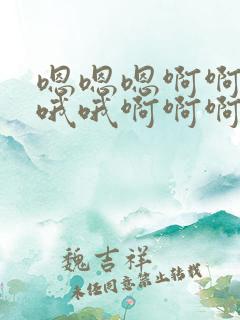 嗯嗯嗯啊啊
哦哦啊啊啊
魏吉祥
未经同意禁止转载